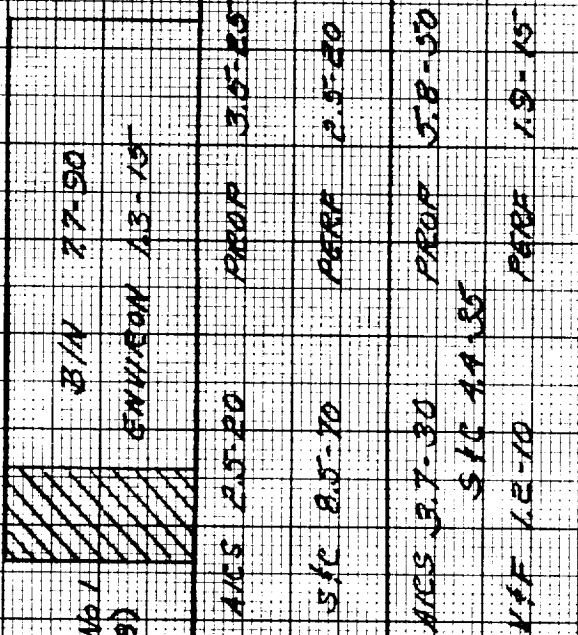 No 1
B/N 7.7-90
ENVIRON 1.3-15
AICS 2.5-20 PROP 3.5-25
S&C 8.5-70 PERF 2.5-20
AICS 3.7-30 PROP 5.8-50
S&C 4.4-35
V&F 1.2-10 PERF 1.9-15